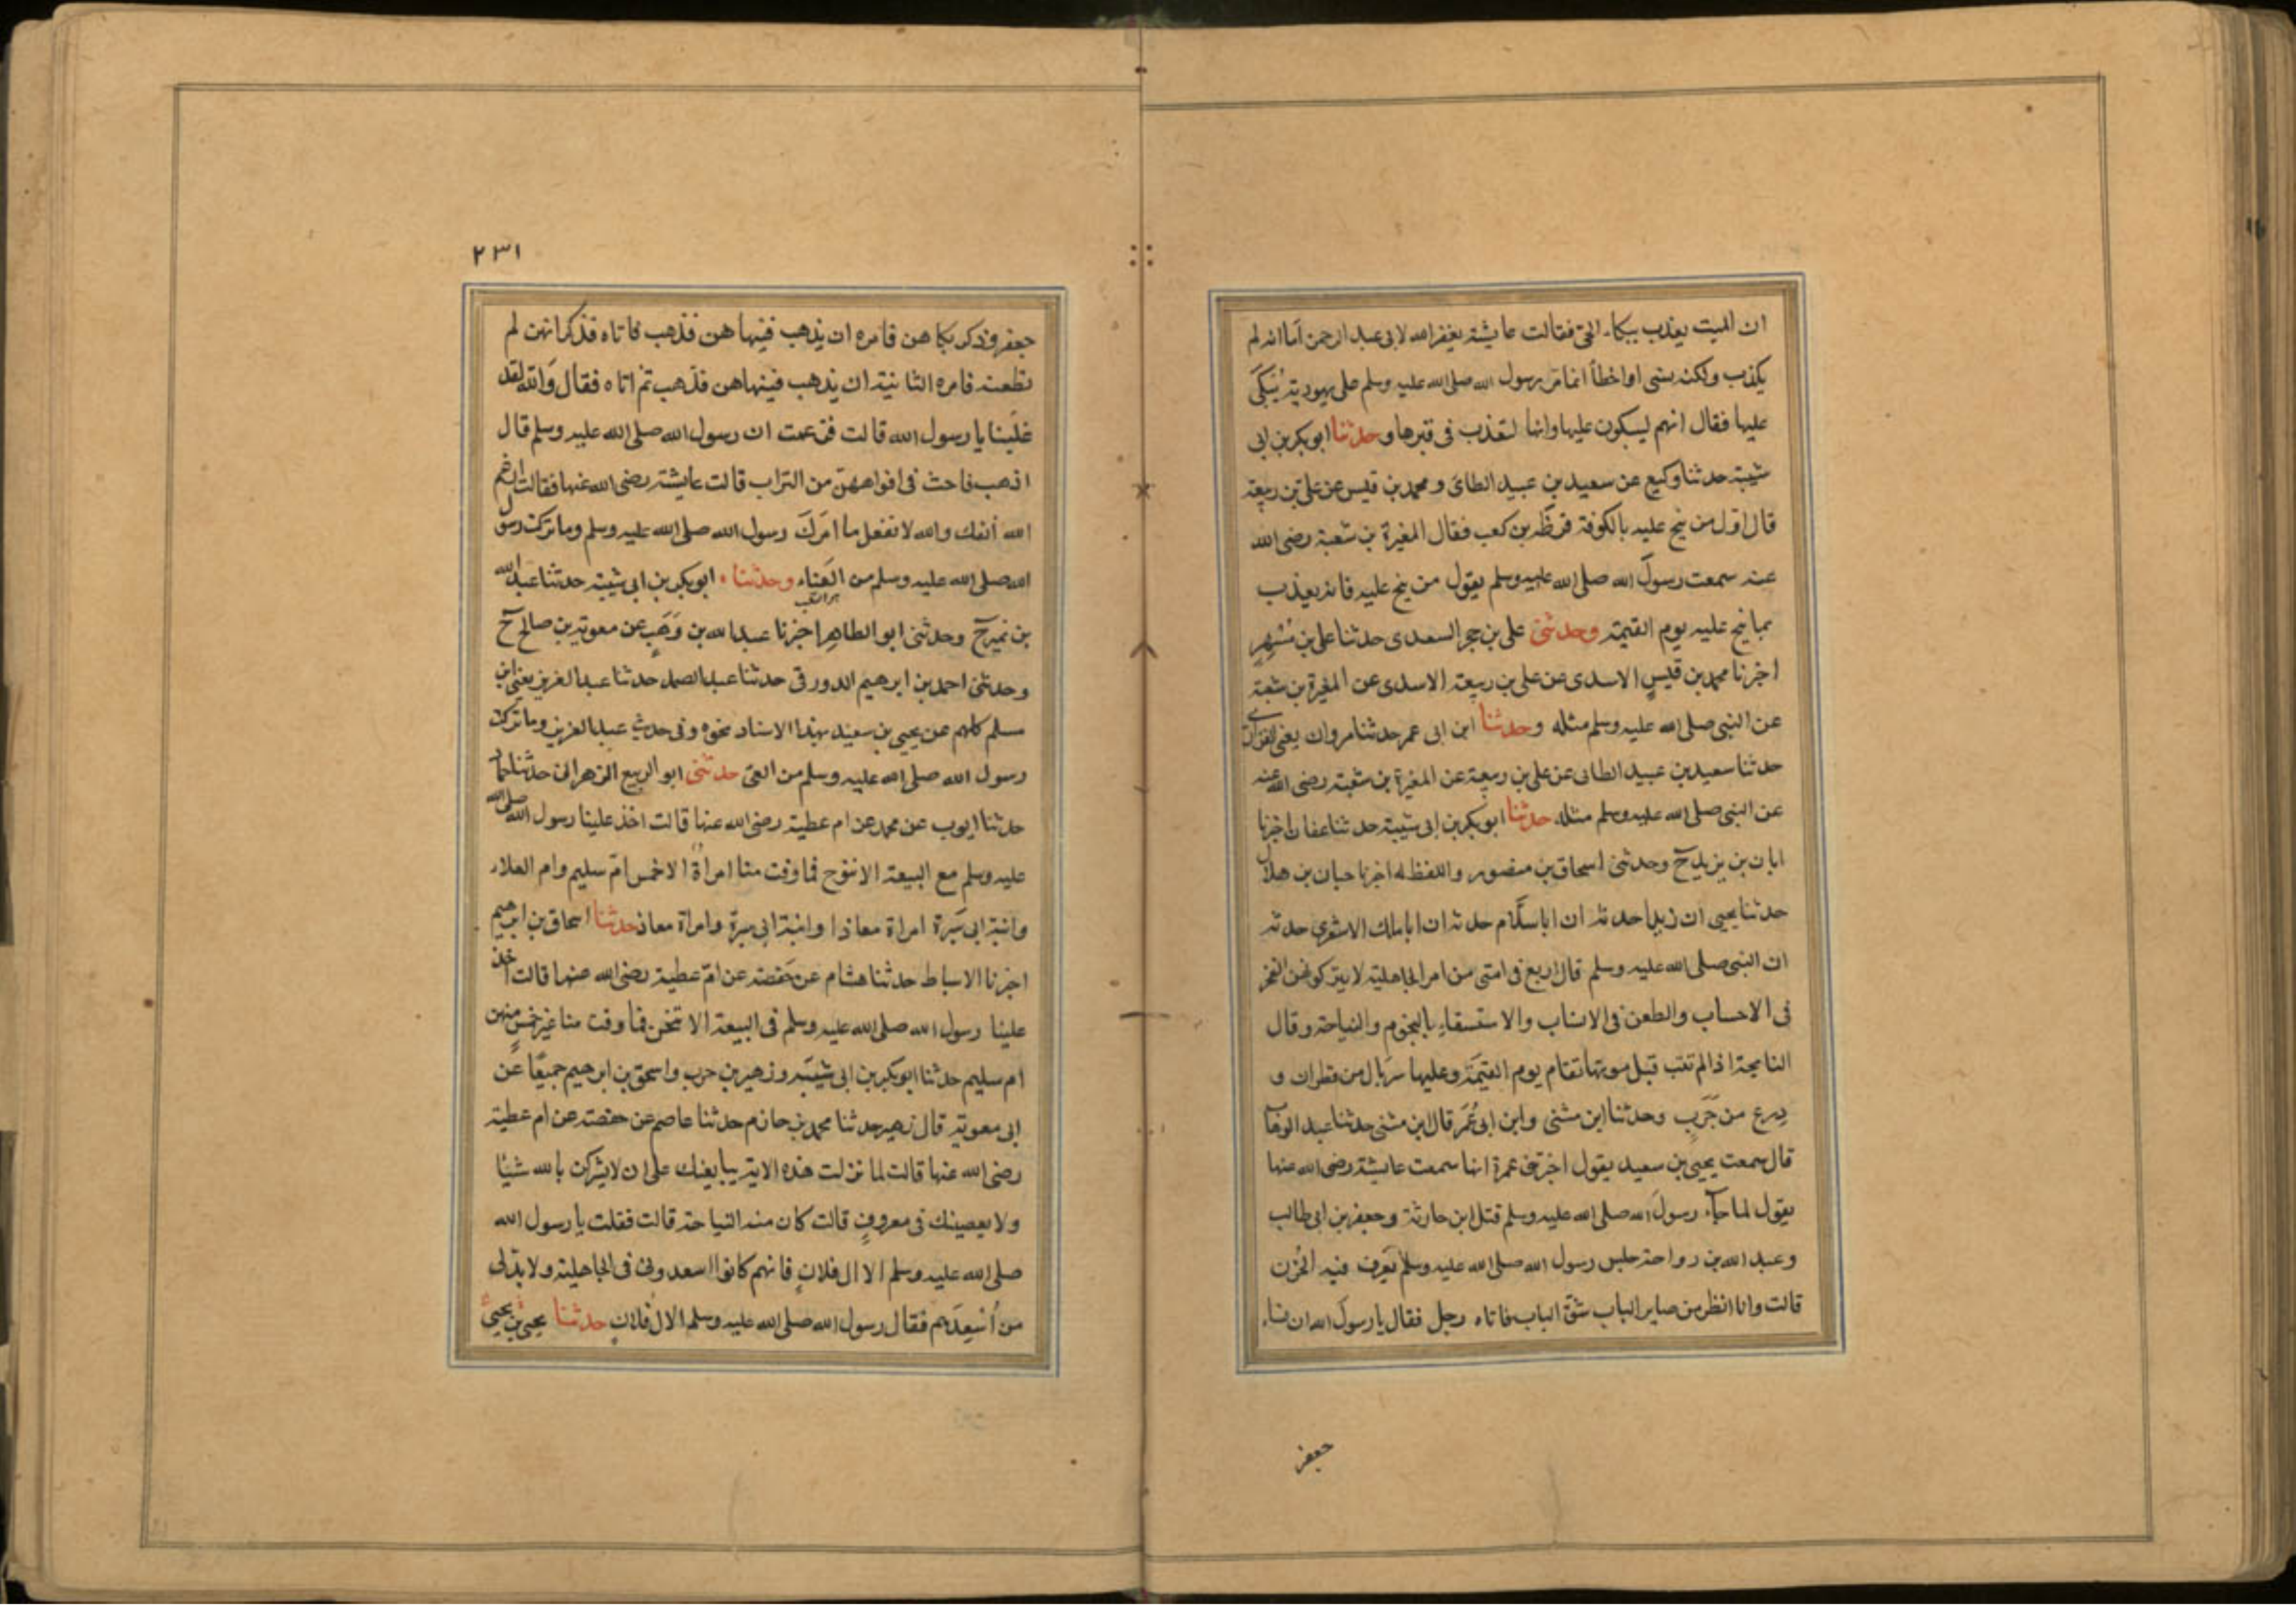 ان الميت يعذب ببكاء الحى فقالت عايشة يغفر الله لابى عبد الرحمن اما انه لم
يكذب ولكنه نسى او اخطأ انما مر رسول الله صلى الله عليه وسلم على يهودية يُبكَى
عليها فقال انهم ليبكون عليها وانها لتعذب فى قبرها وحدثنا ابو بكر بن ابى
شيبة حدثنا وكيع عن سعيد بن عبيد الطائ و محمد بن قيس عن على بن ربيعة
قال اول من نيح عليه بالكوفة قرظَة بن كعب فقال المغيرة بن شعبة رضى الله
عنه سمعت رسول الله صلى الله عليه وسلم يقول من نيح عليه فانه يعذب
بما نيح عليه يوم القيمة وحدثنى على بن حجر السعدى حدثنا على بن مُسْهِرٍ
اخبرنا محمد بن قيس الاسدى عن على بن ربيعة الاسدى عن المغيرة بن شعبة
عن النبى صلى الله عليه وسلم مثله وحدثنا ابن ابى عمر حدثنا مروان يعنى الفزارى
حدثنا سعيد بن عبيد الطائى عن على بن ربيعة عن المغيرة بن شعبة رضى الله عنه
عن النبى صلى الله عليه وسلم مثله حدثنا ابو بكر بن ابى شيبة حدثنا عفان اخبرنا
ابان بن يزيد ح وحدثنى اسحاق بن منصور واللفظ له اخبرنا حبان بن هلال
حدثنا يحيى ان زيدا حدثه ان ابا سلام حدثه ان ابا ملك الاشعرى حدثه
ان النبى صلى الله عليه وسلم قال اربع فى امتى من امر الجاهلية لا يتركونهن الفخر
فى الاحساب والطعن فى الانساب والاستسقاء بالنجوم والنياحة وقال
النايحة اذا لم تتب قبل موتها تقام يوم القيمة وعليها سربال من قطران و
درع من جَرَبٍ وحدثنا ابن مثنى وابن ابى عُمَرَ قال ابن مثنى حدثنا عبد الوهاب
قال سمعت يحيى بن سعيد يقول اخبرتنى عمرة انها سمعت عايشة رضى الله عنها
يقول لما جاء رسولَ الله صلى الله عليه وسلم قتل ابن حارثة وجعفر بن ابى طالب
وعبد الله بن رواحة جلس رسول الله صلى الله عليه وسلم يُعرف فيه الحُزن
قالت وانا انظر من صاير الباب شق الباب فاتاه رجل فقال يا رسول الله ان نساء
جعفر
٢٣١
جعفر وذكر بكاهن فامره ان يذهب فينهاهن فذهب فاتاه فذكر انهن لم
يطعنه فامره الثانية ان يذهب فينهاهن فذهب ثم اتاه فقال والله لقد
غلبننا يا رسول الله قالت فزعمت ان رسول الله صلى الله عليه وسلم قال
اذهب فاحث فى افواههن من التراب قالت عايشة رضى الله عنها فقالت ارغم
الله انفك والله لا تفعل ما امَرَكَ رسول الله صلى الله عليه وسلم وما تركت رسول
الله صلى الله عليه وسلم من العَناء وحدثناه ابو بكر بن ابى شيبة حدثنا عبد الله
بن نمير ح وحدثنى ابو الطاهر اخبرنا عبد الله بن وَهَبٍ عن معوية بن صالح ح
وحدثنى احمد بن ابرهيم الدورقى حدثنا عبد الصمد حدثنا عبد العزيز يعنى ابن
مسلم كلهم عن يحيى بن سعيد بهذا الاسناد نحوه وفى حديث عبد العزيز وما تركت
رسول الله صلى الله عليه وسلم من العى حدثنى ابو الربيع الزهرانى حدثنا حماد
حدثنا ايوب عن محمد عن ام عطية رضى الله عنها قالت اخذ علينا رسول الله صلى الله
عليه وسلم مع البيعة الا ننوح فما وفت منا امراة الا خمس ام سليم وام العلاء
وابنة ابى سَبرة امراة معاذ او ابنة ابى سبرة وامراة معاذ حدثنا اسحاق بن ابرهيم
اخبرنا الاسباط حدثنا هشام عن حفصة عن ام عطية رضى الله عنها قالت اخذ
علينا رسول الله صلى الله عليه وسلم فى البيعة الا تنحن فما وفت منا غير خمسٍ منهن
ام سليم حدثنا ابو بكر بن ابى شيبة وزهير بن حرب واسحق بن ابرهيم جميعًا عن
ابى معوية قال زهير حدثنا محمد بن حازم حدثنا عاصم عن حفصة عن ام عطية
رضى الله عنها قالت لما نزلت هذه الاية يبايعنك على ان لا يشركن بالله شيئا
ولا يعصينك فى معروفٍ قالت كان منه النياحة قالت فقلت يا رسول الله
صلى الله عليه وسلم الا ال فلان فانهم كانوا اسعدونى فى الجاهلية ولا بد لى
من اُسْعِدَهم فقال رسول الله صلى الله عليه وسلم الا ال فلان حدثنا يحيى بن يحيى